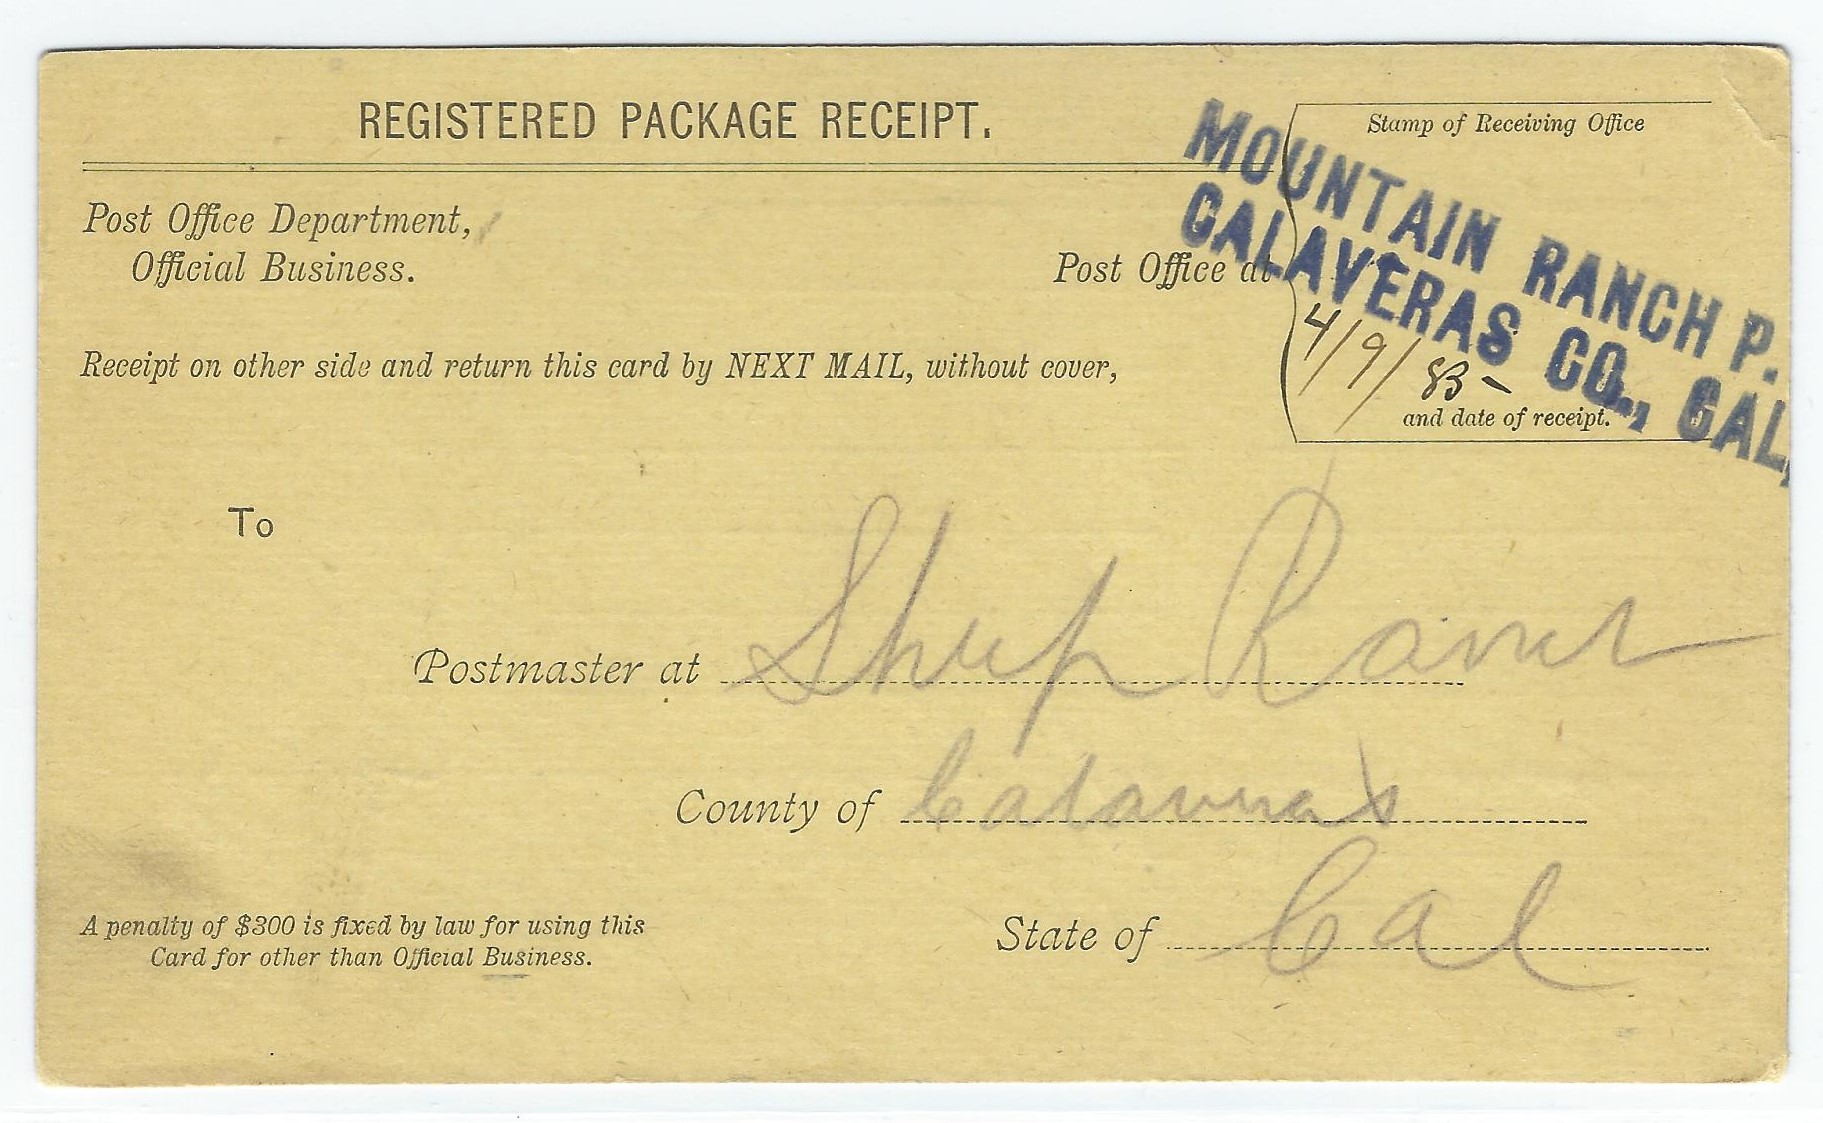 REGISTERED PACKAGE RECEIPT.
Stamp of Receiving Office
MOUNTAIN RANCH P.
CALAVERAS CO., CAL.
Post Office Department,
Official Business.
Post Office at
4/9/83-
Receipt on other side and return this card by NEXT MAIL, without cover,
and date of receipt.
To
Postmaster at Sheep Ranch
County of Calaveras
State of Cal
A penalty of $300 is fixed by law for using this
Card for other than Official Business.